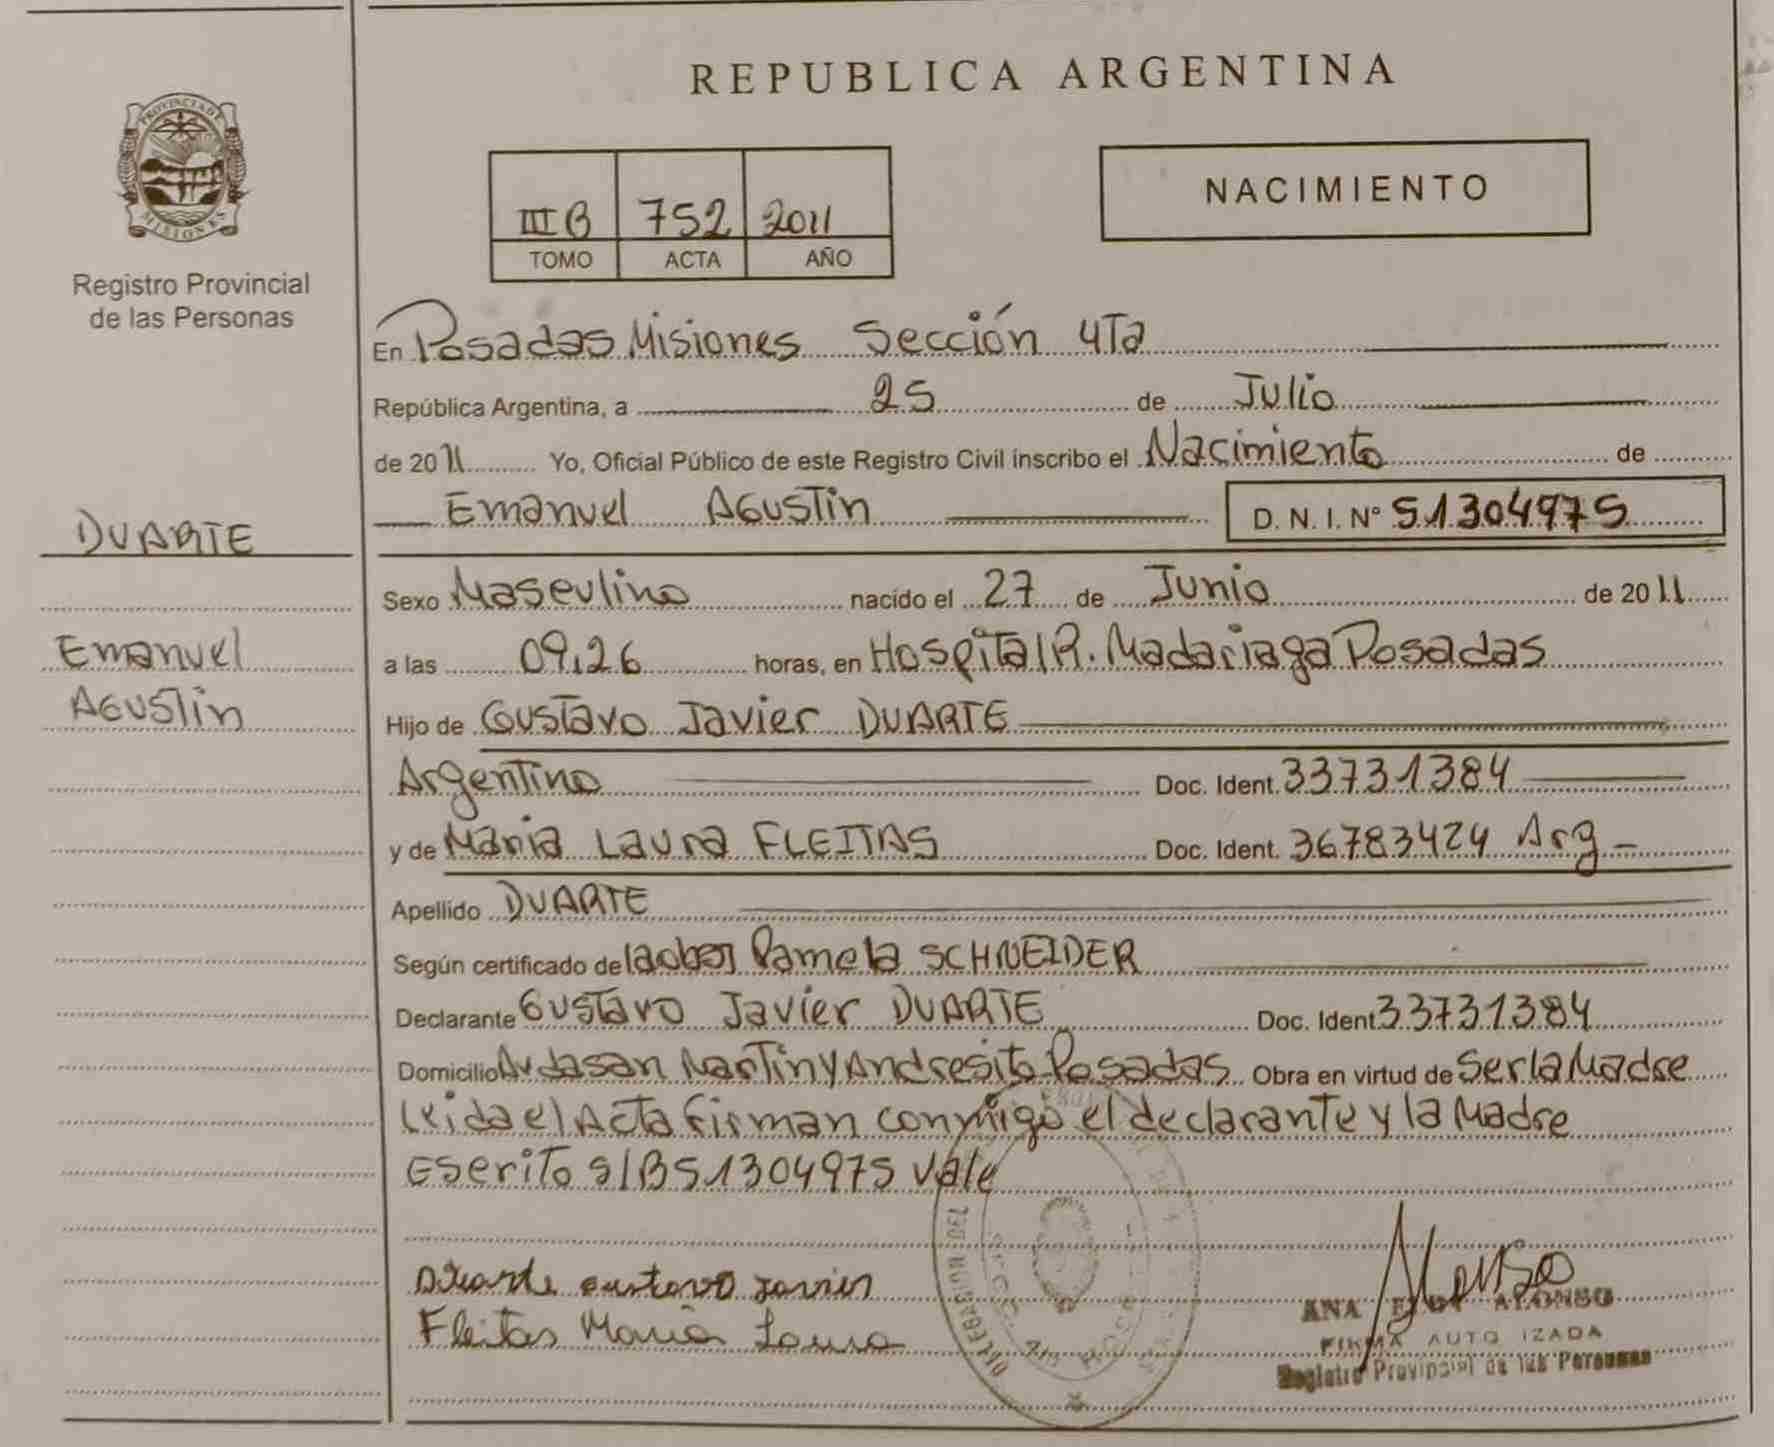 REPUBLICA ARGENTINA
PROVINCIA DE
MISIONES
Registro Provincial
de las Personas
III B 752 2011
TOMO ACTA AÑO
NACIMIENTO
En Posadas Misiones Sección 4Ta
República Argentina, a 25 de Julio
de 2011 Yo, Oficial Público de este Registro Civil inscribo el Nacimiento de
Emanuel Agustin D. N. I. Nº 51304975
DUARTE
Emanuel
Agustin
Sexo Masculino nacido el 27 de Junio de 2011
a las 09,26 horas, en Hospital R. Madariaga Posadas
Hijo de Gustavo Javier DUARTE
Argentino Doc. Ident. 33731384
y de Maria Laura FLEITAS Doc. Ident. 36783424 Arg
Apellido DUARTE
Según certificado de la obst Pamela SCHNEIDER
Declarante Gustavo Javier DUARTE Doc. Ident 33731384
Domicilio Avda san Martin y Andresito Posadas Obra en virtud de Ser la Madre
leida el Acta firman conmigo el declarante y la Madre
Escrito S/B 51304975 Vale
Duarte Gustavo Javier
Fleitas Maria Laura
DELEGACION
ANA ALONSO
FIRMA AUTORIZADA
Registro Provincial de las Personas